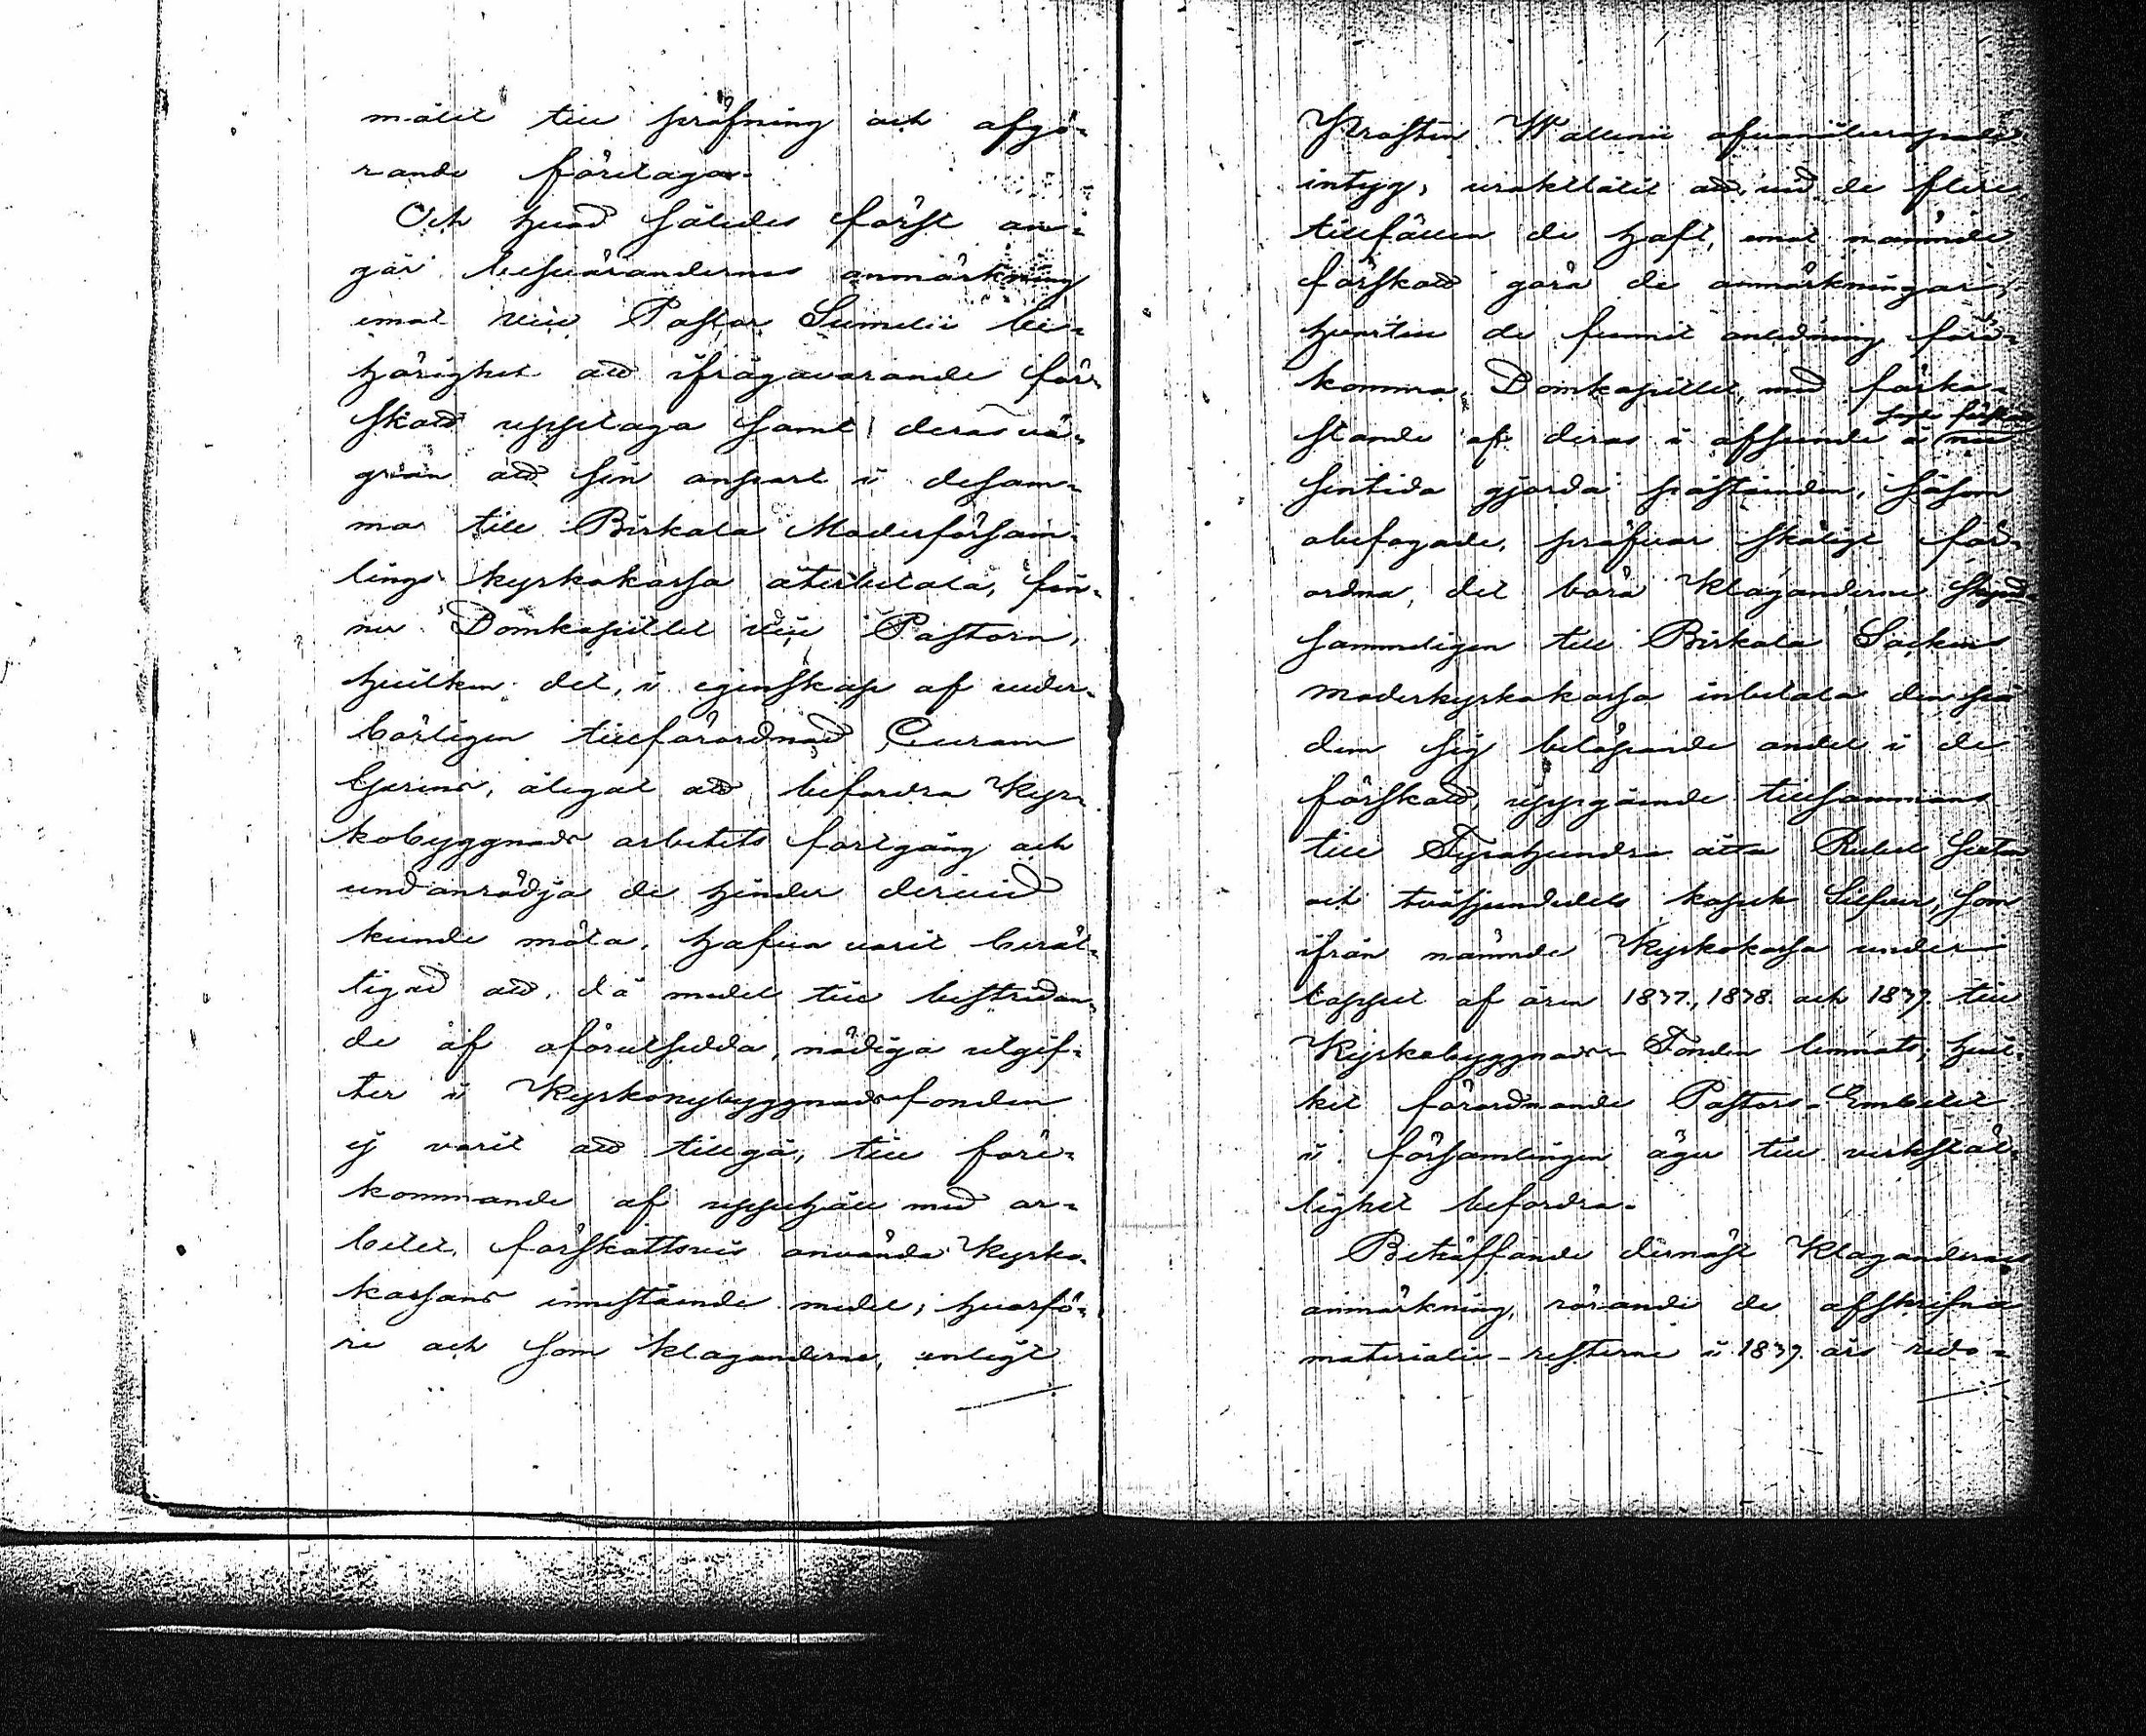 målet till pröfning och afgö-
rande företaga.
Och hvad således först an-
går besvärandernes anmärkning
emot Vice Pastor Sumelii be-
hörighet att ifrågavarande för-
skott upptaga samt deras vä-
gran att sin anpart i desam-
ma till Birkala Moderförsam-
lings kyrkokassa återbetala, fin-
ner Domkapitlet Vice Pastorn,
hvilken det, i egenskap af veder-
börligen tillförordnad Curam
Gerens, ålegat att befordra Kyr-
kobyggnads arbetets fortgång och
undanrödja de hinder dervid
kunde möta, hafva varit berät-
tigad att, då medel till bestridan-
de af oförutsedda, nödiga utgif-
ter i Kyrkonybyggnadsfonden
ej varit att tillgå, till före-
kommande af uppehåll med ar-
betet, förskottsvis använda Kyrko-
kassans innestående medel; hvarfö-
re och som klaganderne, enligt
Prosten Wallenii
intyg, uraktlåtit att, vid de flere
tillfällen de haft, emot nämnde
förskott göra de anmärkningar,
hvartill de funnit anledning före-
komma, Domkapitlet, med förka-
stande af deras i afseende å
sentida gjorda påståenden, såsom
obefogade, pröfvar skäligt för-
ordna, det böra Klaganderne
sammeligen till Birkala Socken
moderkyrkokassa inbetala den på
dem sig belöpande andel i de
förskott, uppgående tillsammans
till Fyrahundra åtta Rubel sexton
och tvåsjundedels kopek Silfver, som
ifrån nämnde Kyrkokassa under
loppet af åren 1837, 1838 och 1839 till
Kyrkobyggnads Fonden lemnats; hvil-
ket förordnande Pastors-Embetet
i församlingen äger till verkstäl-
lighet befordra.
Beträffande dernäst Klagandernes
anmärkning, rörande de afskrifna
materialie-resterne i 1839 års redo-